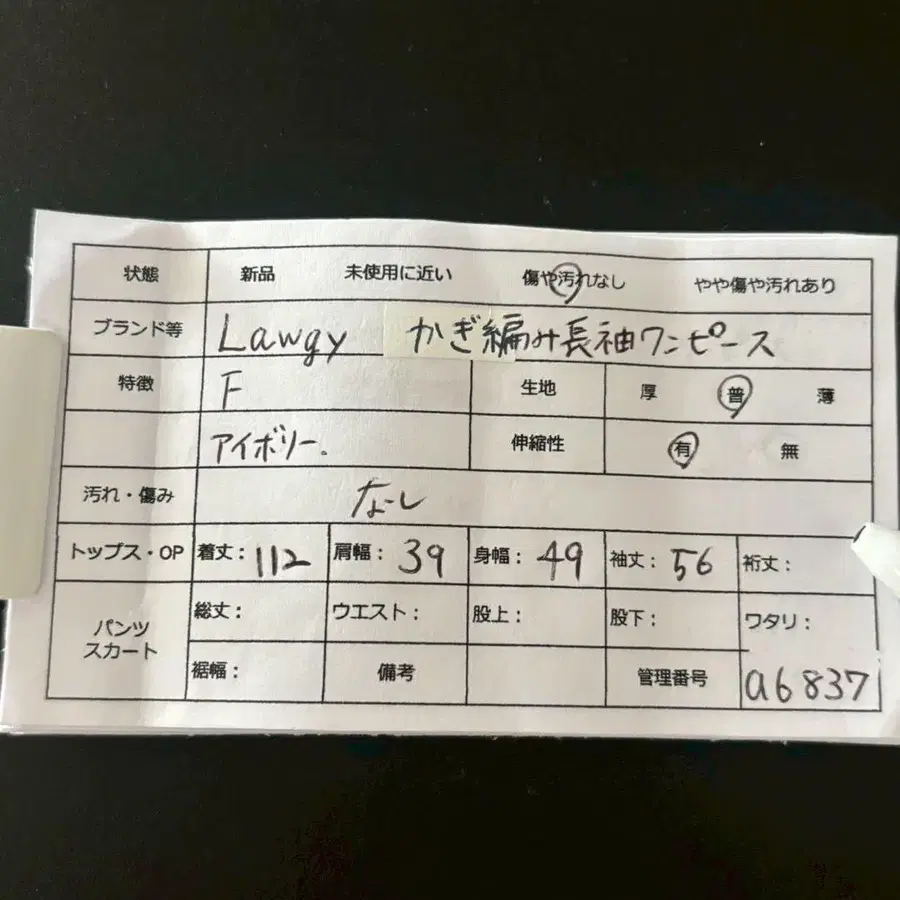 状態 新品 未使用に近い 傷や汚れなし やや傷や汚れあり
ブランド等 Lawgy かぎ編み長袖ワンピース
特徴 F 生地 厚 普 薄
アイボリー. 伸縮性 有 無
汚れ・傷み なし
トップス・OP 着丈: 112 肩幅: 39 身幅: 49 袖丈: 56 裄丈:
パンツ スカート 総丈: ウエスト: 股上: 股下: ワタリ:
裾幅: 備考 管理番号 a6837